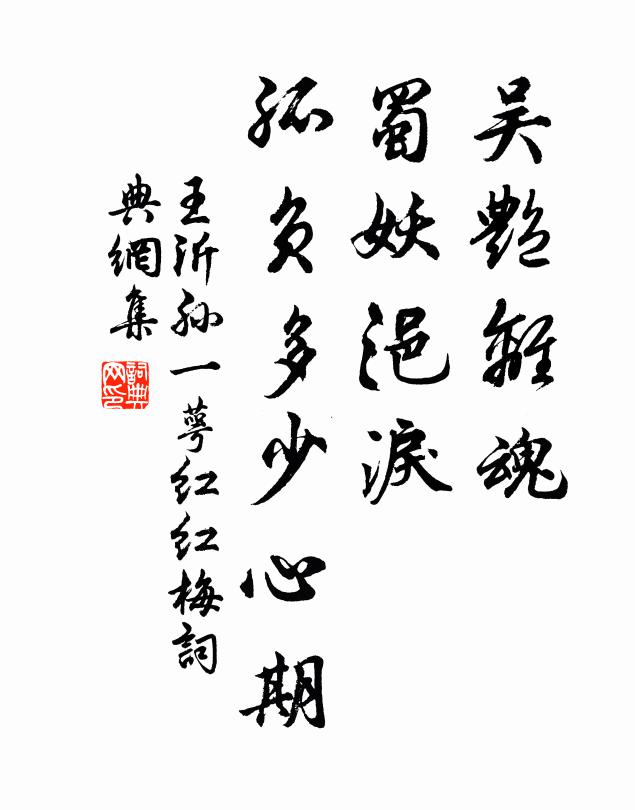 吴艷離魂
蜀妖浥淚
孤负多少心期
王沂孙一萼红红梅詞
典網集
詞典网印